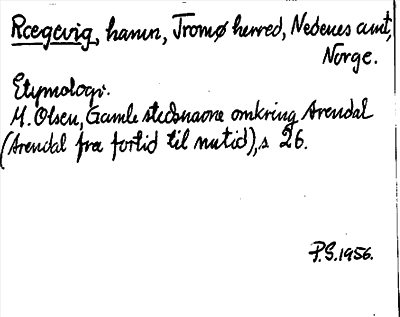 Rægevig, hamn, Tromø herred, Nedenes amt,
Norge.
Etymologi.
M. Olsen, Gamle stedsnavne omkring Arendal
(Arendal fra fortid til nutid), s 26.
P.S. 1956.